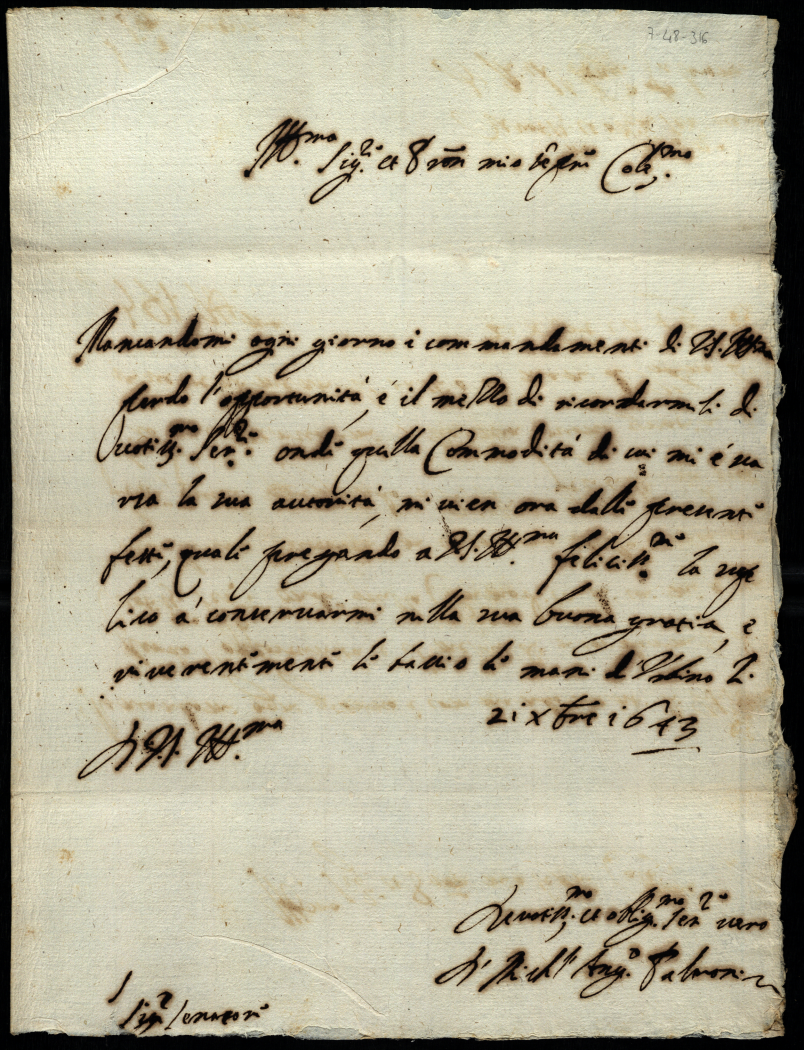 7-48-316
Ill.mo Sig.re et Pron mio sẽpre Col.mo
Mancandomi ogni giorno i commandamenti di V.S. Ill.ma
perdo l'opportunità, é il mezzo di ricordarmeli di
votiss.mo Ser.re onde quella Commodità di cui mi é sca
rsa la sua autorità, mi vien ora dalle presenti
feste, quali pregando a V.S. Ill.ma feliciss.me la sup
lico á conservarmi nella sua buona gratia, e
riverentemente le bacio le mani d'Urbino li
21 Xbre 1643
Di V.S. Ill.ma
Devotiss.mo et oblig.mo Ser.re vero
Sig.re Senatore